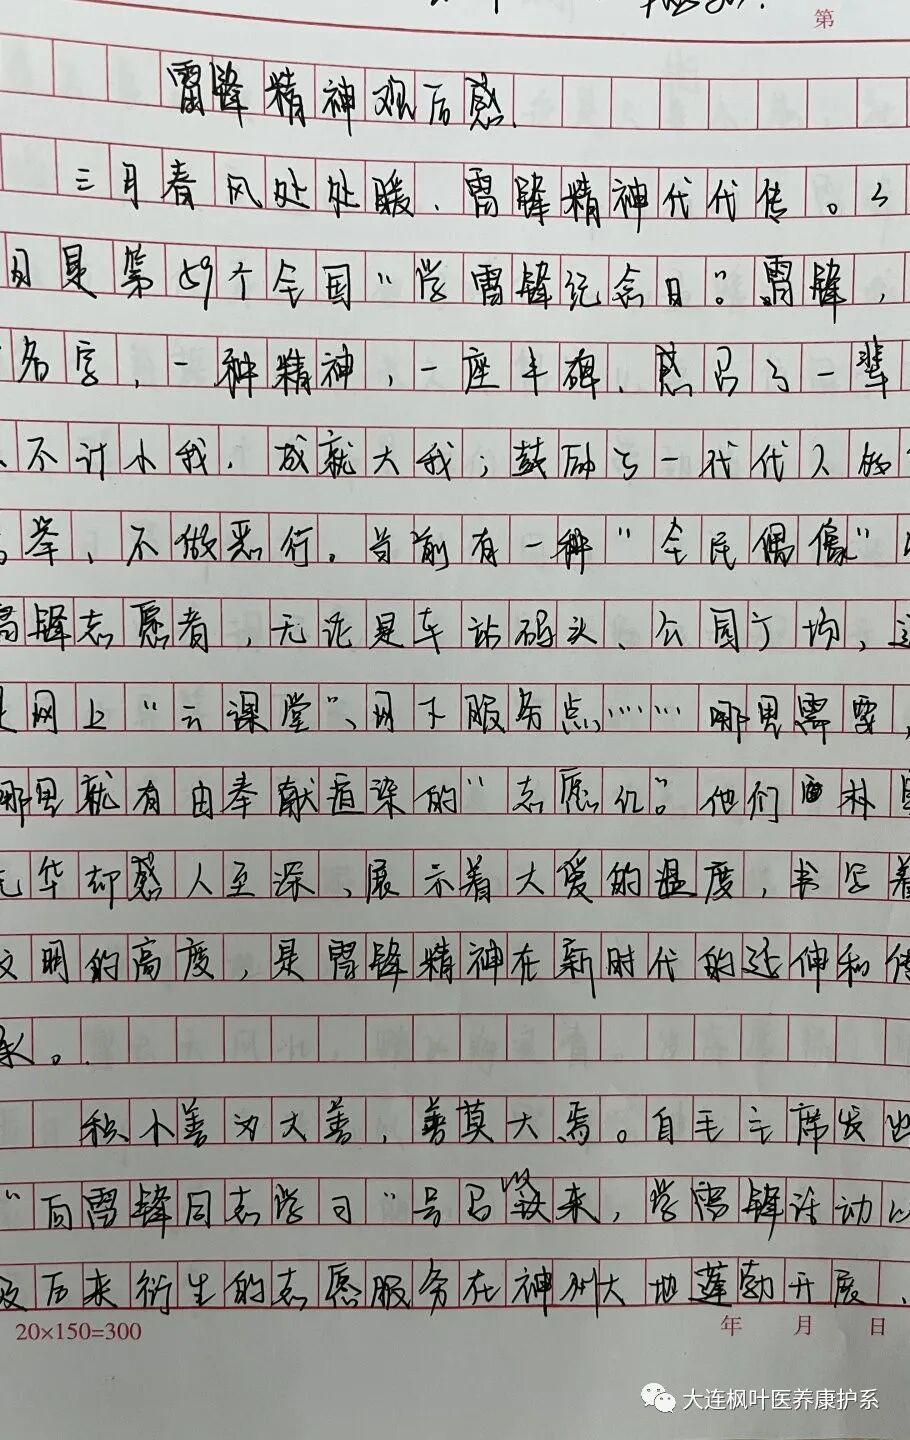 第
雷锋精神观后感.
三月春风处处暖、雷锋精神代代传。
月是第59个全国“学雷锋纪念日”。雷锋，
名字，一种精神，一座丰碑、感召了一辈
不计小我，成就大我；鼓励了一代代人的
举、不做恶行。当前有一种“全民偶像”
雷锋志愿者，无论是车站码头、公园广场，还
是网上“云课堂”、网下服务点…… 哪里需要，
哪里就有由奉献渲染的“志愿红”。他们朴
无华却感人至深、展示着大爱的温度，书写着
文明的高度，是雷锋精神在新时代的延伸和传
承。
积小善为大善，善莫大焉。自毛主席发出
“向雷锋同志学习”号召以来，学雷锋活动以
及后来衍生的志愿服务在神州大地蓬勃开展、
20×150=300
年 月 日
大连枫叶医养康护系